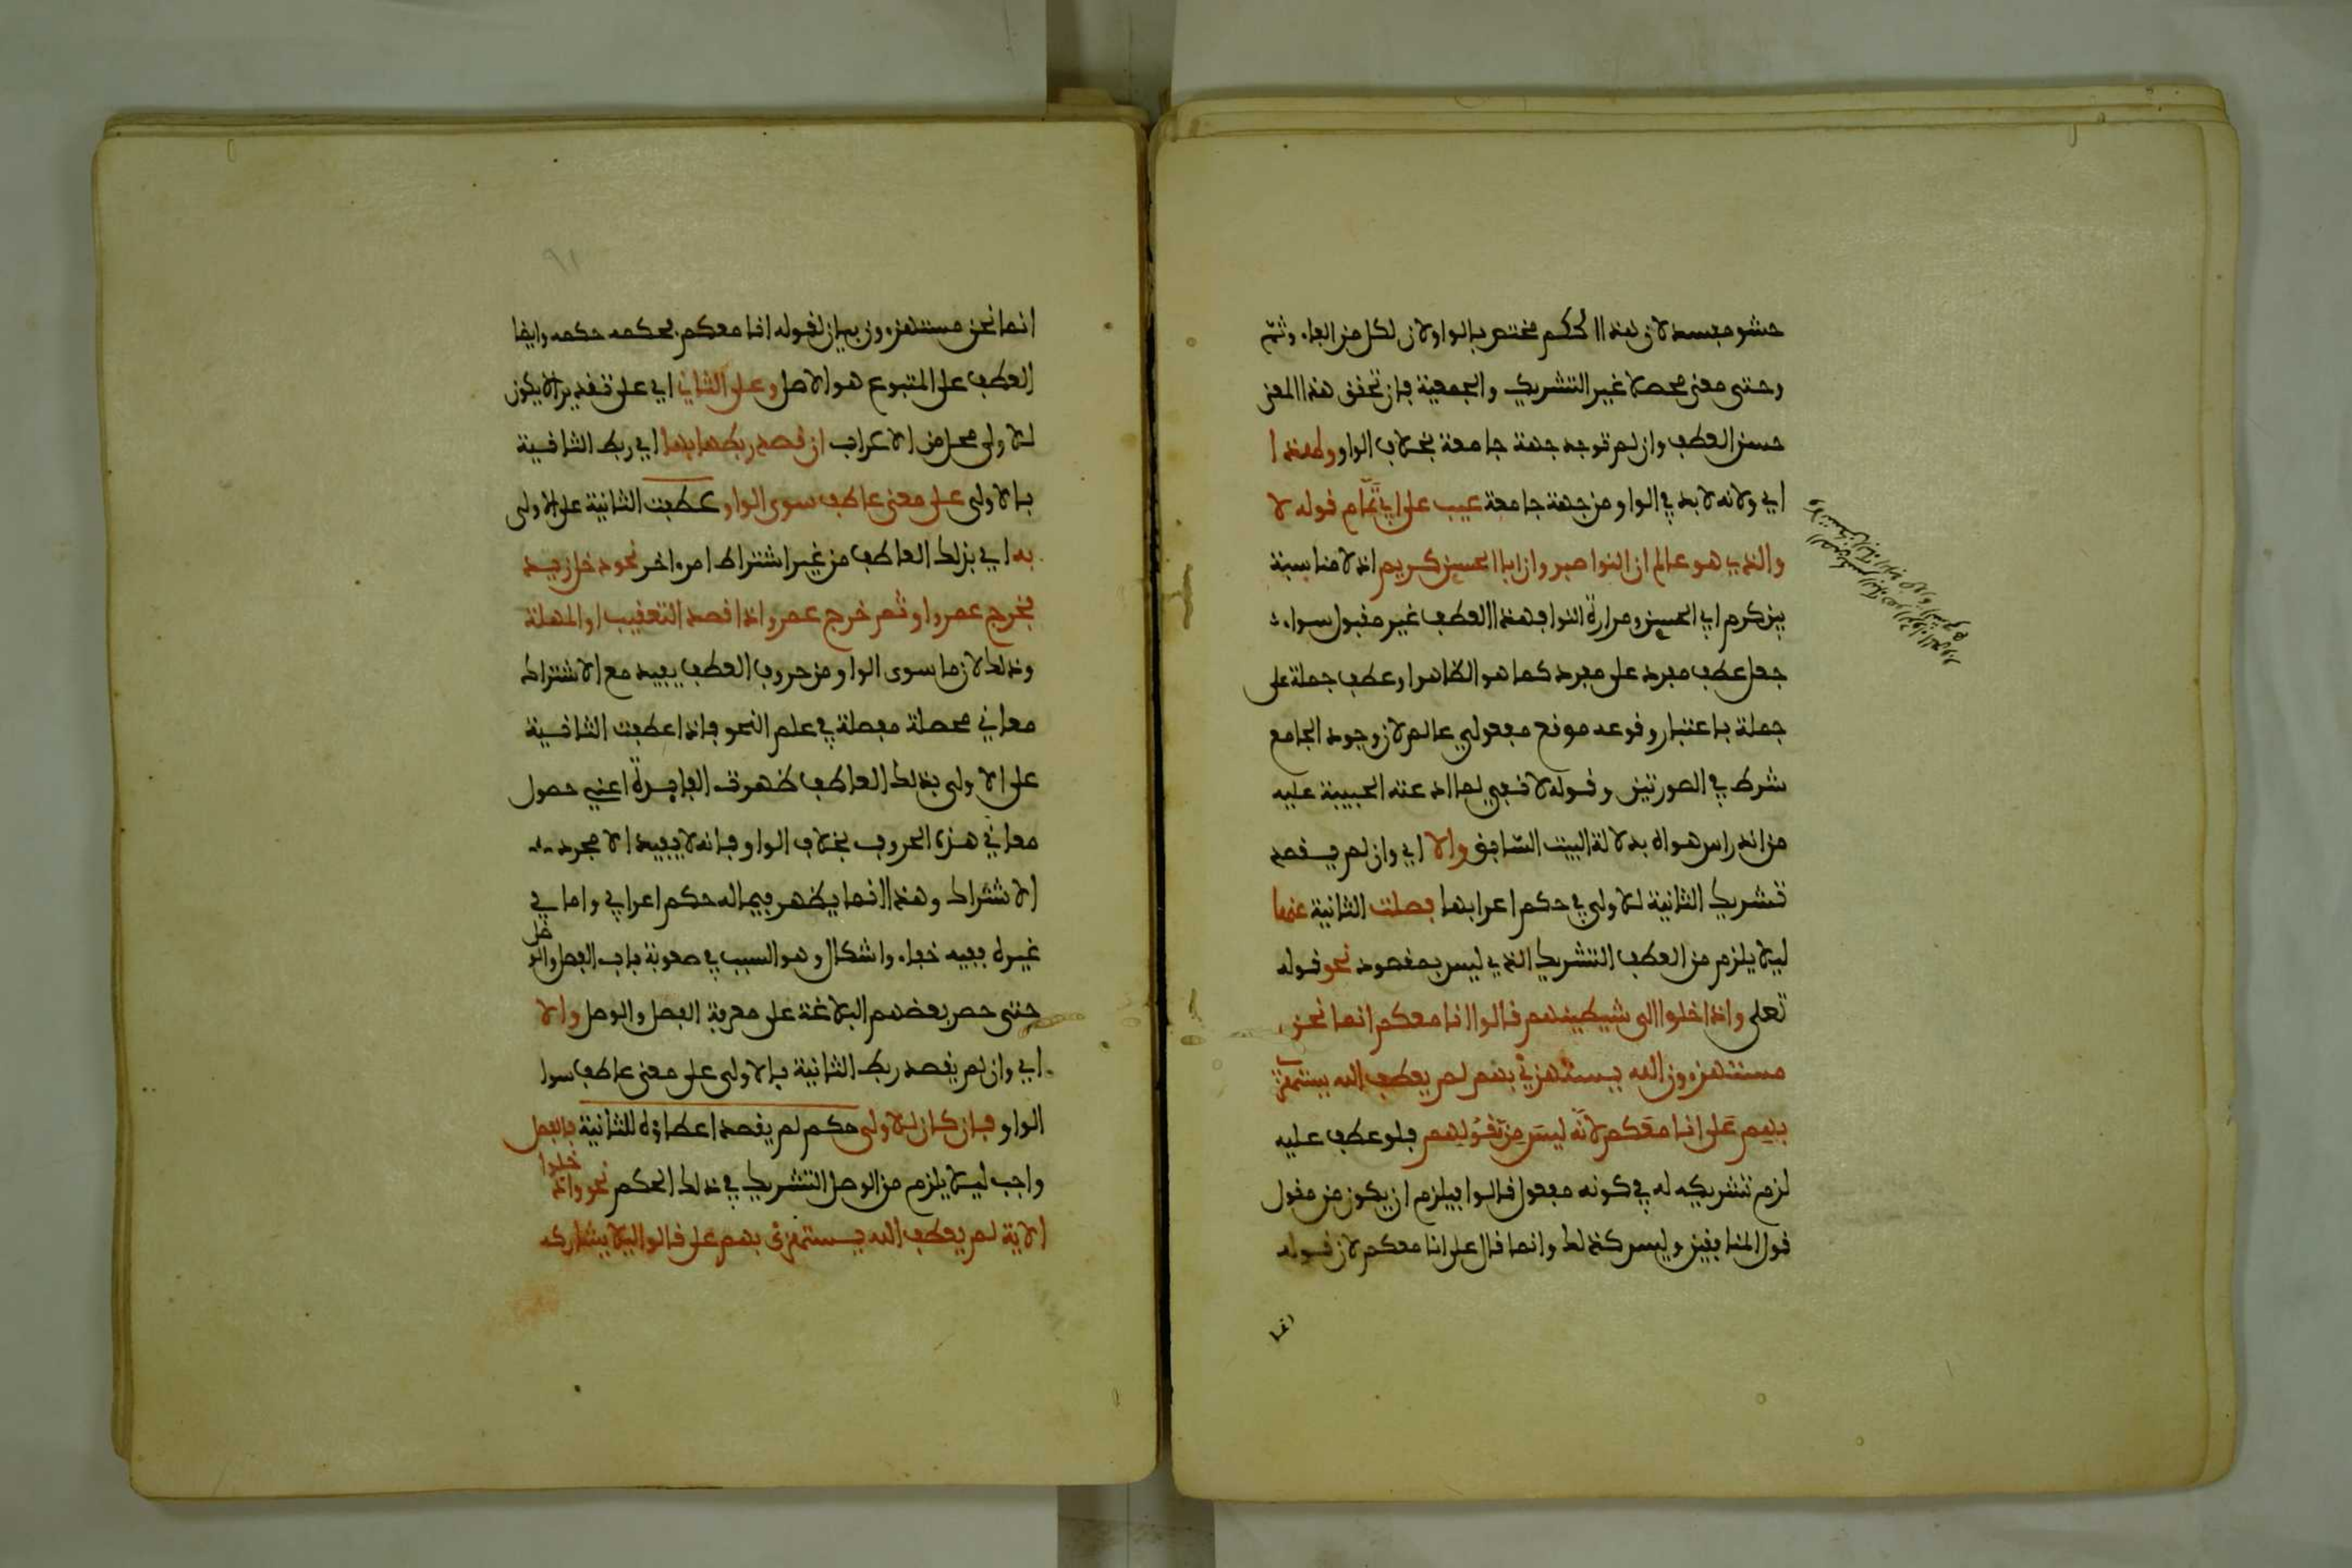 حشو مفسد لان هذا الحكم مختص بالواو لان لكل من الفاء وثم
وحتى معنى محصلا غير التشريك والجمعية فان تحقق هذا المعنى
حسن العطف وان لم توجد جهة جامعة بخلاف الواو ولهذا
اي ولانه لا بد في الواو من جهة جامعة عيب على ابي تمام قوله لا
والذي هو عالم ان النوا صبر وان ابا الحسين كريم اذ لا مناسبة
بين كرم ابي الحسين ومرارة النوا فهذا العطف غير مقبول سواء
جعل عطف مفرد على مفرد كما هو الظاهر او عطف جملة على
جملة باعتبار وقوعه موقع مفعولي عالم لان وجود الجامع
شرط في الصورتين وقوله لا نفي لما ادعته الحبيبة عليه
من اندراس هواه بدلالة البيت السابق والا اي وان لم يقصد
تشريك الثانية للاولى في حكم اعرابها فصلت الثانية عنها
ليلا يلزم من العطف التشريك الذي ليس بمقصود نحو قوله
تعلى واذا خلوا الى شيطينهم قالوا انا معكم انما نحن
مستهزءون الله يستهزئ بهم لم يعطف الله يستهزئ
بهم على انا معكم لانه ليس من مقولهم فلو عطف عليه
لزم تشريكه له في كونه مفعول قالوا فيلزم ان يكون من مقول
قول المنافقين وليس كذلك وانما قال على انا معكم لان قوله
انما
٩١
انما نحن مستهزءون بيان لقوله انا معكم فحكمه حكمه وايضا
العطف على المتبوع هو الاصل وعلى الثاني اي على تقدير الا يكون
للاولى محل من الاعراب ان قصد ربطها بها اي ربط الثانية
بالاولى على معنى عاطف سوى الواو عطفت الثانية على الاولى
به اي بذلك العاطف من غير اشتراط امر اخر نحو دخل زيد
فخرج عمرو او ثم خرج عمرو اذا قصد التعقيب او المهلة
وذلك لان ما سوى الواو من حروف العطف يفيد مع الاشتراك
معاني محصلة مفصلة في علم النحو فاذا عطفت الثانية
على الاولى بذلك العاطف ظهرت الفايدة اعني حصول
معاني هذه الحروف بخلاف الواو فانه لا يفيد الا مجرد
الاشتراك وهذا انما يظهر فيما له حكم اعرابي واما في
غيره ففيه خفاء واشكال وهو السبب في صعوبة باب الفصل والوصل
حتى حصر بعضهم البلاغة على معرفة الفصل والوصل والا
اي وان لم يقصد ربط الثانية بالاولى على معنى عاطف سوا
الواو فان كان للاولى حكم لم يقصد اعطاؤه للثانية فالفصل
واجب ليلا يلزم من الوصل التشريك في ذلك الحكم نحو واذا خلوا
الاية لم يعطف الله يستهزئ بهم على قالوا ليلا يشاركه